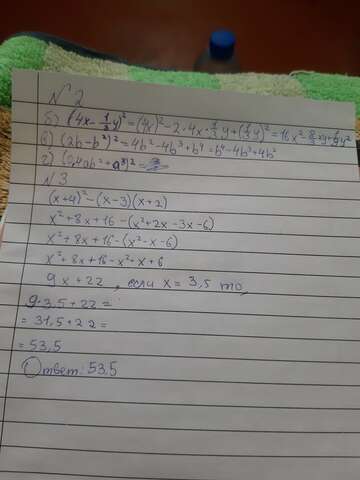 №2
б) (4x - 1/3 y)² = (4x)² - 2·4x·1/3 y + (1/3 y)² = 16x² - 8/3 xy + 1/9 y²
в) (2b - b²)² = 4b² - 4b³ + b⁴ = b⁴ - 4b³ + 4b²
г) (0,4ab² + a³)² =
№3
(x+4)² - (x-3)(x+2)
x² + 8x + 16 - (x² + 2x - 3x - 6)
x² + 8x + 16 - (x² - x - 6)
x² + 8x + 16 - x² + x + 6
9x + 22, если x = 3,5 то,
9·3,5 + 22 =
= 31,5 + 22 =
= 53,5
Ответ: 53,5